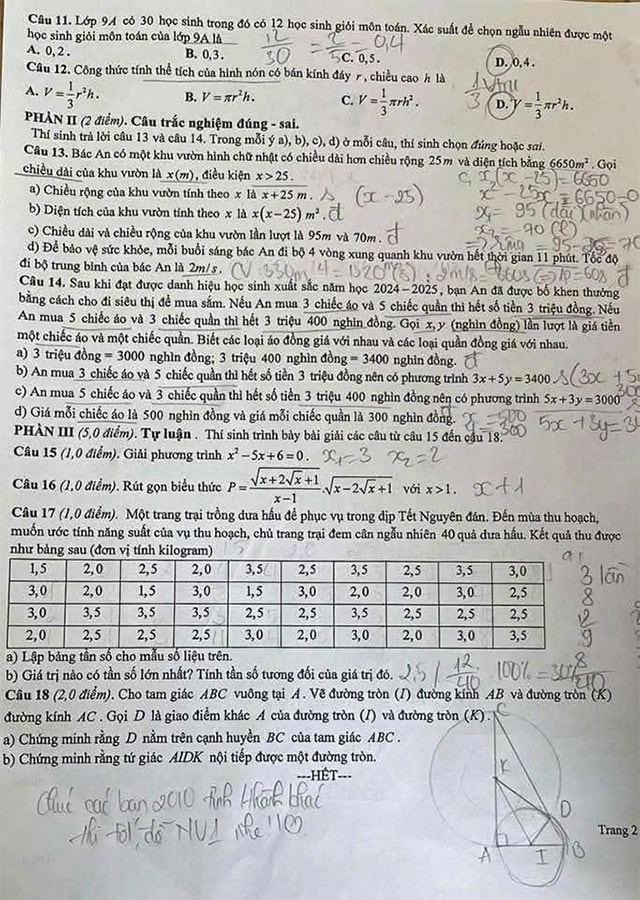 Câu 11. Lớp 9A có 30 học sinh trong đó có 12 học sinh giỏi môn toán. Xác suất để chọn ngẫu nhiên được một
học sinh giỏi môn toán của lớp 9A là
12/30 = 2/5 = 0,4
A. 0,2. B. 0,3. C. 0,5. D. 0,4.
Câu 12. Công thức tính thể tích của hình nón có bán kính đáy r, chiều cao h là
A. V = 1/3 r²h. B. V = πr²h. C. V = 1/3 πrh². D. V = 1/3 πr²h.
1/3 Vtrụ
PHẦN II (2 điểm). Câu trắc nghiệm đúng - sai.
Thí sinh trả lời câu 13 và câu 14. Trong mỗi ý a), b), c), d) ở mỗi câu, thí sinh chọn đúng hoặc sai.
Câu 13. Bác An có một khu vườn hình chữ nhật có chiều dài hơn chiều rộng 25m và diện tích bằng 6650m². Gọi
chiều dài của khu vườn là x(m), điều kiện x > 25. c, x(x-25) = 6650
a) Chiều rộng của khu vườn tính theo x là x+25 m. s (x-25) x² - 25x - 6650 = 0
b) Diện tích của khu vườn tính theo x là x(x-25) m². đ x₁ = 95 (nhận)
c) Chiều dài và chiều rộng của khu vườn lần lượt là 95m và 70m. đ x₂ = -70 (l)
d) Để bảo vệ sức khỏe, mỗi buổi sáng bác An đi bộ 4 vòng xung quanh khu vườn hết thời gian 11 phút. Tốc độ
đi bộ trung bình của bác An là 2m/s. CV: 330m
Câu 14. Sau khi đạt được danh hiệu học sinh xuất sắc năm học 2024-2025, bạn An đã được bố khen thưởng
bằng cách cho đi siêu thị để mua sắm. Nếu An mua 3 chiếc áo và 5 chiếc quần thì hết số tiền 3 triệu đồng. Nếu
An mua 5 chiếc áo và 3 chiếc quần thì hết 3 triệu 400 nghìn đồng. Gọi x, y (nghìn đồng) lần lượt là giá tiền
một chiếc áo và một chiếc quần. Biết các loại áo đồng giá với nhau và các loại quần đồng giá với nhau.
a) 3 triệu đồng = 3000 nghìn đồng; 3 triệu 400 nghìn đồng = 3400 nghìn đồng. đ
b) An mua 3 chiếc áo và 5 chiếc quần thì hết số tiền 3 triệu đồng nên có phương trình 3x+5y = 3400 s
c) An mua 5 chiếc áo và 3 chiếc quần thì hết số tiền 3 triệu 400 nghìn đồng nên có phương trình 5x+3y = 3000
d) Giá mỗi chiếc áo là 500 nghìn đồng và giá mỗi chiếc quần là 300 nghìn đồng. x = 500
PHẦN III (5,0 điểm). Tự luận. Thí sinh trình bày bài giải các câu từ câu 15 đến câu 18. y = 300
Câu 15 (1,0 điểm). Giải phương trình x² - 5x + 6 = 0. x₁ = 3 x₂ = 2
Câu 16 (1,0 điểm). Rút gọn biểu thức P = √(x+2√x+1)/(x-1) . √(x-2√x+1) với x > 1. x+1
Câu 17 (1,0 điểm). Một trang trại trồng dưa hấu để phục vụ trong dịp Tết Nguyên đán. Đến mùa thu hoạch,
muốn ước tính năng suất của vụ thu hoạch, chủ trang trại đem cân ngẫu nhiên 40 quả dưa hấu. Kết quả thu được
như bảng sau (đơn vị tính kilogram)
1,5 2,0 2,5 2,0 3,5 2,5 3,5 2,5 3,5 3,0 3 lần
3,0 2,0 1,5 3,0 1,5 3,0 2,0 2,0 3,0 2,5 8
3,0 3,5 3,5 3,5 2,5 2,5 3,5 2,5 2,5 2,5 12
2,0 2,5 2,5 2,5 3,0 2,0 3,0 2,5 3,0 3,5 9
8
a) Lập bảng tần số cho mẫu số liệu trên.
b) Giá trị nào có tần số lớn nhất? Tính tần số tương đối của giá trị đó. 2,5 / 12/40 . 100% = 30%
Câu 18 (2,0 điểm). Cho tam giác ABC vuông tại A. Vẽ đường tròn (I) đường kính AB và đường tròn (K)
đường kính AC. Gọi D là giao điểm khác A của đường tròn (I) và đường tròn (K).
a) Chứng minh rằng D nằm trên cạnh huyền BC của tam giác ABC.
b) Chứng minh rằng tứ giác AIDK nội tiếp được một đường tròn.
---HẾT---
C
K
D
A I B
Chúc các bạn 2010
thi tốt, đỗ NV1 nhé!!
Trang 2